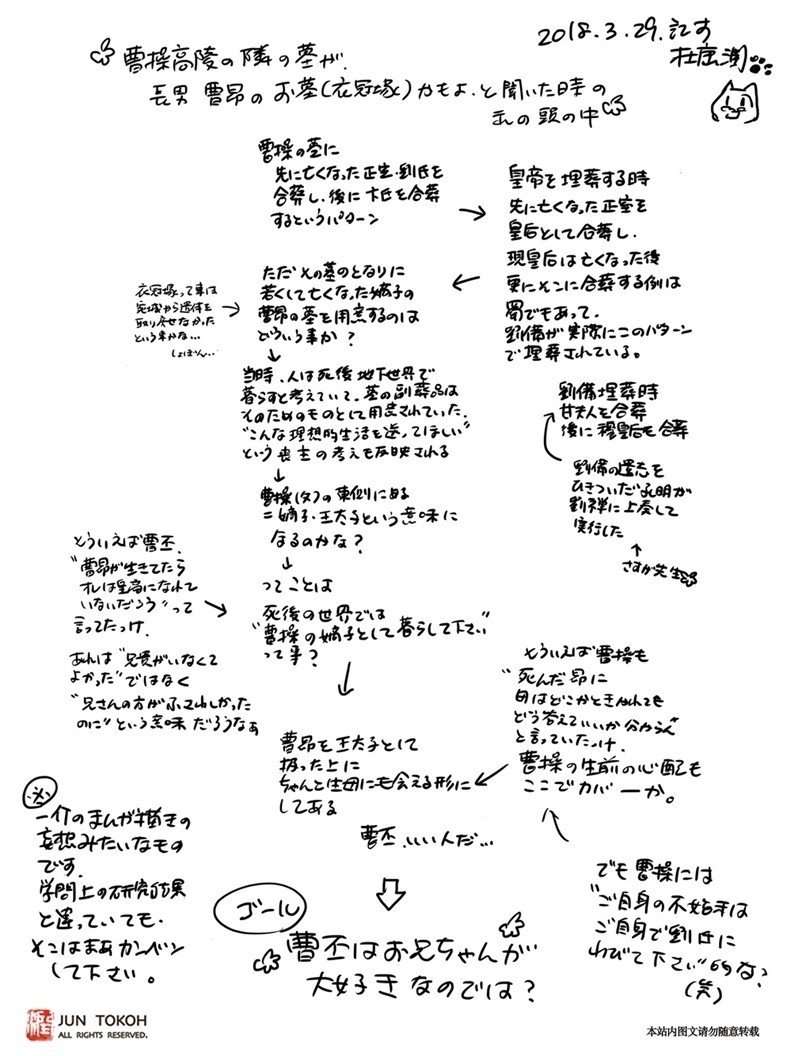 2018.3.29.記す
杜康潤
曹操高陵の隣の墓が、
長男 曹昂のお墓(衣冠塚)かもよ、と聞いた時の
私の頭の中
曹操の墓に
先に亡くなった正室・劉氏を
合葬し、後に卞氏を合葬
するというパターン
→
皇帝を埋葬する時
先に亡くなった正室を
皇后として合葬し、
現皇后は亡くなった後
更にそこに合葬する例は
蜀でもあって、
劉備が実際にこのパターン
で埋葬されている。
劉備埋葬時
甘夫人を合葬
後に穆皇后も合葬
劉備の遺志を
ひきついだ孔明が
劉禅に上奏して
実行した
さすが先生
ただその墓のとなりに
若くして亡くなった嫡子の
曹昂の墓を用意するのは
どういう事か?
衣冠塚って事は
宛城から遺体を
取り戻せなかった
という事かな…
しょぼん…
当時、人は死後地下世界で
暮らすと考えていて、墓の副葬品は
そのためのものとして用意されていた。
"こんな理想的生活を送ってほしい"
という喪主の考えも反映される
曹操(父)の東側にある
=嫡子・王太子という意味に
なるのかな?
ってことは
死後の世界では
"曹操の嫡子として暮らして下さい"
って事?
そういえば曹丕、
"曹昂が生きてたら
オレは皇帝になれて
いないだろう"って
言ってたっけ、
あれは"兄貴がいなくて
よかった"ではなく
"兄さんの方がふさわしかった
のに"という意味だろうなぁ
そういえば曹操も
"死んだ昂に
母はどこかときかれても
どう答えていいか分からん"
と言っていたっけ、
曹操の生前の心配も
ここでカバーか。
でも曹操には
"ご自身の不始末は
ご自身で劉氏に
わびて下さい"的な?
(笑)
曹昂を王太子として
扱った上に
ちゃんと生母にも会える形に
してある
曹丕、いい人だ…
ゴール
曹丕はお兄ちゃんが
大好きなのでは?
※
一介のまんが描きの
妄想みたいなもの
です。
学問上の研究結果
と違っていても、
そこはまあカンベン
して下さい。
JUN TOKOH
ALL RIGHTS RESERVED.
本站内图文请勿随意转载